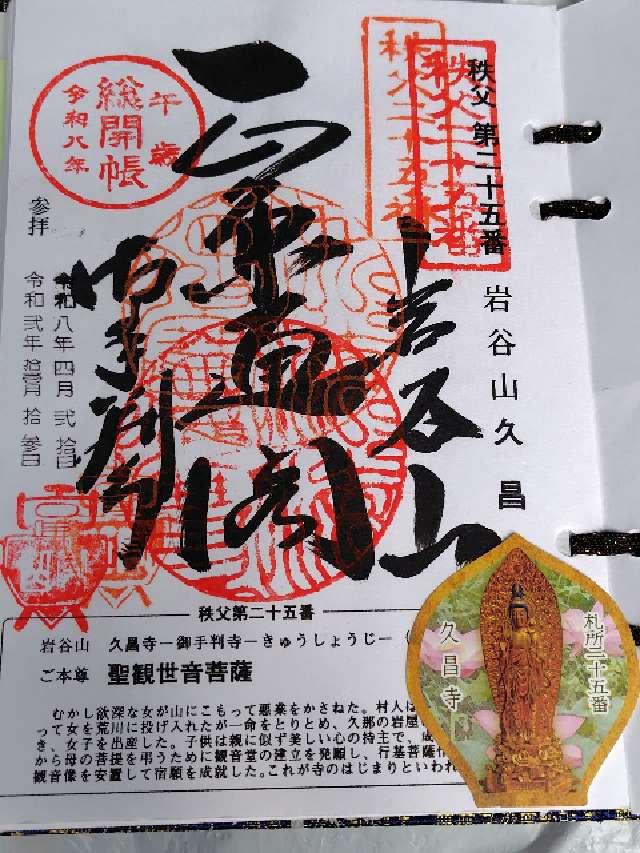 秩父 第二十五番
岩谷山久昌
秩父二十五番
秩父二十五番
岩谷山
正
閣
御手判
午歳
総開帳
令和八年
参拝
令和八年四月弐拾日
令和弐年拾壹月拾参日
秩父第二十五番
岩谷山 久昌寺ー御手判寺ーきゅうしょうじー
ご本尊 聖観世音菩薩
むかし欲深な女が山にこもって悪業をかさねた。村人は
って女を荒川に投げ入れたが一命をとりとめ、久那の岩屋
き、女子を出産した。子供は親に似ず美しい心の持主で、
から母の菩提を弔うために観音堂の建立を発願し、行基菩薩
観音像を安置して宿願を成就した。これが寺のはじまりといわれ
札所二十五番
久昌寺